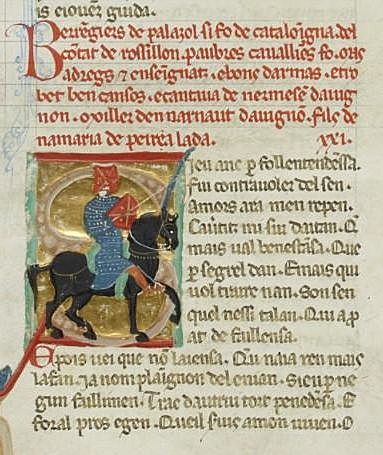 is eiouen guida.
Berengiers de palazol si fo de cataloigna del
contat de rossillon. paubres cavalliers fo. mas
adregz & enseignatz. e bons darmas. e tro
bet ben cansos. e cantava de nermesen dauig
non. moiller den narnaut dauignon. filg de
na maria de peira lada. XXI.
ieu anc p follentendessa.
Fui contrauoler del sen.
Amors ara men repen.
mais ual benestansa. Que
p segrel dan. Emais qui
uol traire nan. Son sen
quel nessi talan. Qui ap
at de fallensa.
E pois uei que no laiensa. Qu naia ren mais
lafan. Ja nom plaignon del enian. Sieu p ne
gun faillimen. Trac dautrui tort penedesa. E
foral pros e gen. Queil fins amon uiuen. O